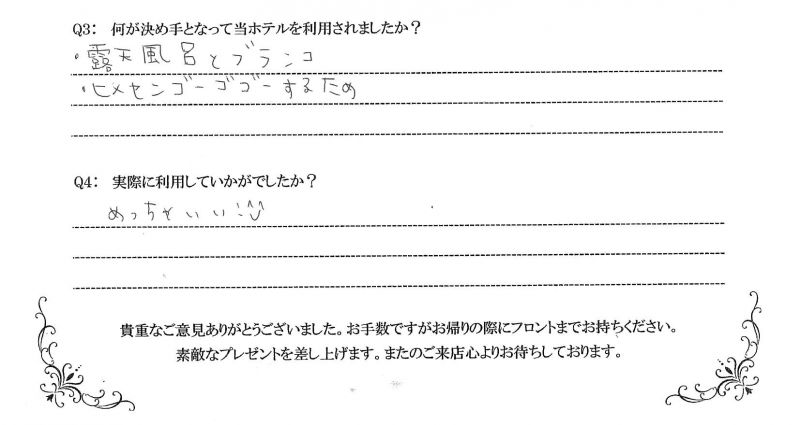 Q3: 何が決め手となって当ホテルを利用されましたか?
・露天風呂とブランコ
・ヒメセンゴーゴゴーするため
Q4: 実際に利用していかがでしたか?
めっちゃいい
貴重なご意見ありがとうございました。お手数ですがお帰りの際にフロントまでお持ちください。
素敵なプレゼントを差し上げます。またのご来店心よりお待ちしております。